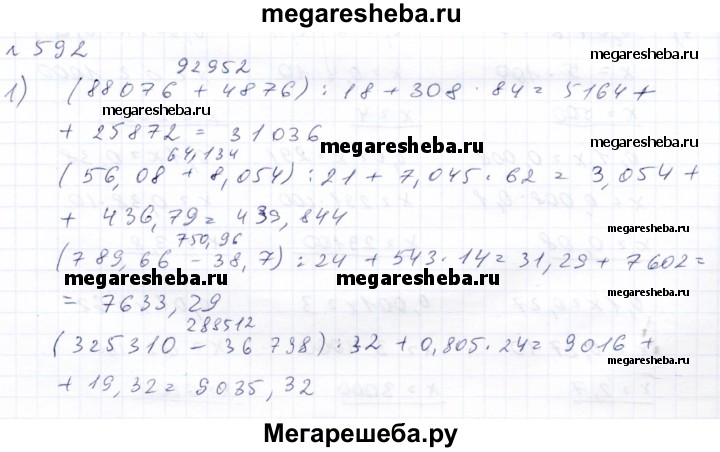 megaresheba.ru
№ 592
megaresheba.ru
92952
1) (88076 + 4876) : 18 + 308 · 84 = 5164 +
megaresheba.ru
+ 25872 = 31036
megaresheba.ru megaresheba.ru
64,134
(56,08 + 8,054) : 21 + 7,045 · 62 = 3,054 +
+ 436,79 = 439,844
750,96
(789,66 - 38,7) : 24 + 543 · 14 = 31,29 + 7602 =
megaresheba.ru megaresheba.ru
= 7633,29
288512
(325310 - 36798) : 32 + 0,805 · 24 = 9016 +
megaresheba.ru
+ 19,32 = 9035,32
Мегарешеба.ру